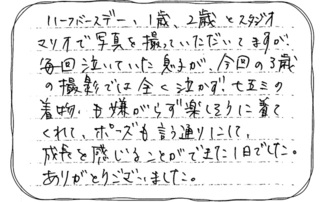 ハーフバースデー、1歳、2歳とスタジオ
マリオで写真を撮っていただいてますが、
毎回泣いていた息子が、今回の3歳
の撮影では全く泣かず、七五三の
着物も嫌がらず楽しそうに着て
くれて、ポーズも言う通りにして、
成長を感じることができた1日でした。
ありがとうございました。